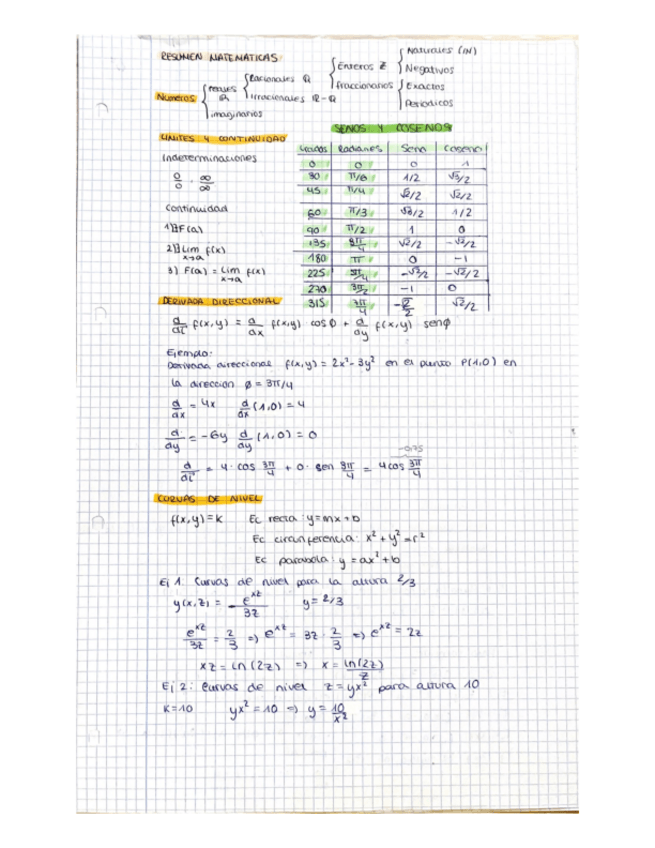 RESUMEN MATEMATICAS
Numeros { reales ℝ { Racionales ℚ { Enteros ℤ { Naturales (ℕ)
Negativos
fraccionarios { Exactos
Periodicos
irracionales ℝ-ℚ
imaginarios
LIMITES Y CONTINUIDAD
Indeterminaciones
0/0 · ∞/∞
Continuidad
1) ∃ F(a)
2) ∃ Lim x→a f(x)
3) F(a) = Lim x→a f(x)
SENOS Y COSENOS
Grados Radianes Seno Coseno
0 0 0 1
30 π/6 1/2 √3/2
45 π/4 √2/2 √2/2
60 π/3 √3/2 1/2
90 π/2 1 0
135 3π/4 √2/2 -√2/2
180 π 0 -1
225 5π/4 -√2/2 -√2/2
270 3π/2 -1 0
315 √2/2
DERIVADA DIRECCIONAL
f(x,y) = d/dx f(x,y) cos Ø + d/dy f(x,y) senØ
Ejemplo:
Derivada direccional f(x,y) = 2x²-3y² en el punto P(1,0) en
la direccion Ø = 3π/4
d/dx = 4x d/dx (1,0) = 4
d/dy = -6y d/dy (1,0) = 0
= 4· cos 3π/4 + 0· sen 3π/4 = 4cos 3π/4
CURVAS DE NIVEL
f(x,y) = K Ec recta: y=mx+b
Ec circunferencia: x²+y²=r²
Ec parabola: y = ax²+b
Ej 1: Curvas de nivel para la altura 2/3
y(x,z) = e^xz/3z y = 2/3
e^xz/3z = 2/3 => e^xz = 3z · 2/3 => e^xz = 2z
xz = Ln (2z) => x = ln(2z)/z
Ej 2: Curvas de nivel z = yx² para altura 10
K=10 yx² = 10 => y = 10/x²